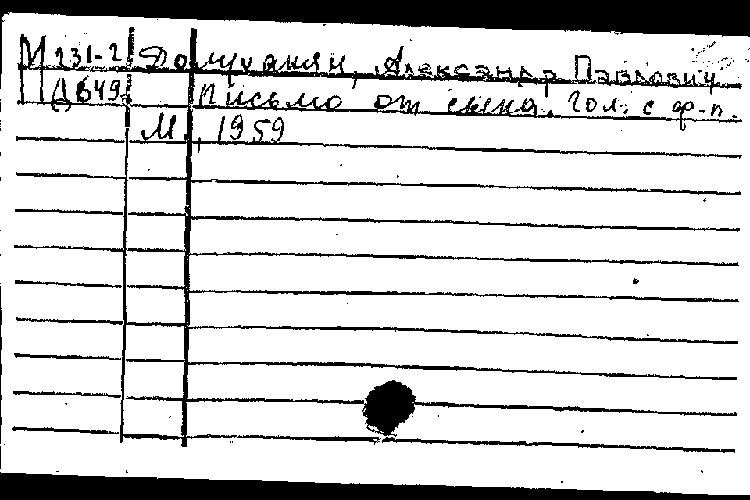 М 231-2 Долуханян, Александр Павлович
Д649 Письмо от сына. Гол. с ф-п.
М., 1959